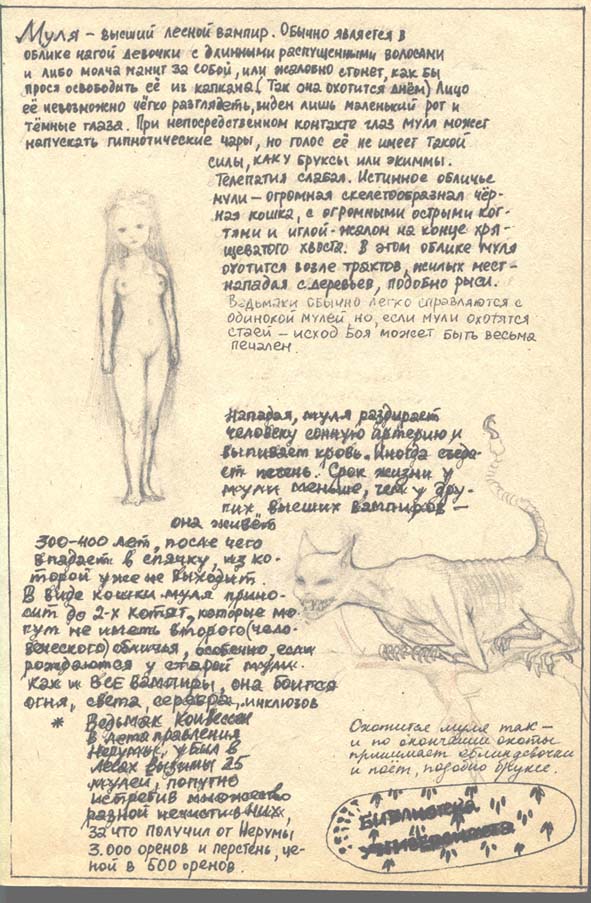 Муля – высший лесной вампир. Обычно является в
облике нагой девочки с длинными распущенными волосами
и либо молча манит за собой, или жалобно стонет, как бы
прося освободить её из капкана. (Так она охотится днём) Лицо
её невозможно чётко разглядеть, виден лишь маленький рот и
тёмные глаза. При непосредственном контакте глаз муля может
напускать гипнотические чары, но голос её не имеет такой
силы, как у бруксы или экиммы.
Телепатия слабая. Истинное обличье
мули – огромная скелетообразная чёр-
ная кошка, с огромными острыми ког-
тями и иглой-жалом на конце хря-
щеватого хвоста. В этом облике муля
охотится возле трактов, жилых мест –
нападая с деревьев, подобно рыси.
Ведьмаки обычно легко справляются с
одинокой мулей, но, если мули охотятся
стаей – исход боя может быть весьма
печален.
Нападая, муля раздирает
человеку сонную артерию и
выпивает кровь. Иногда съеда-
ет печень. Срок жизни у
мули меньше, чем у дру-
гих высших вампиров –
она живёт
300-400 лет, после чего
впадает в спячку, из ко-
торой уже не выходит.
В виде кошки муля прино-
сит до 2-х котят, которые мо-
гут не иметь второго (чело-
веческого) обличья, особенно, если
рождаются у старой мули.
Как и ВСЕ вампиры, она боится
огня, света, серебра, инклюзов
* Ведьмак
в лета правления
Нерумы, убил в
лесах Вызимы 25
мулей, попутно
истребив множество
разной нечисти в них,
за что получил от Нерумы
3.000 оренов и перстень, це-
ной в 500 оренов.
Охотится муля так –
и по окончании охоты
принимает облик девочки
и поёт, подобно бруксе.
Библиотека
Университета